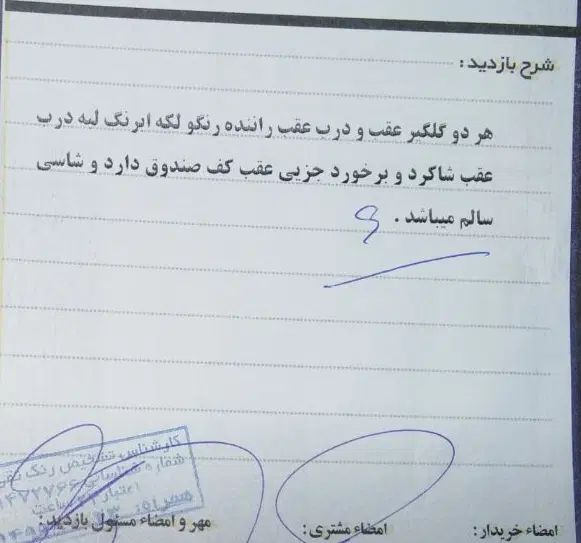 شرح بازدید :
هر دو گلگیر عقب و درب عقب راننده رنگو لکه ابرنگ لبه درب
عقب شاگرد و برخورد جزیی عقب کف صندوق دارد و شاسی
سالم میباشد .
کارشناس تشخیص رنگ
شماره شناسایی
اعتبار ۲۴ ساعت
همراه:
مهر و امضاء مسئول بازدید:
امضاء مشتری :
امضاء خریدار :